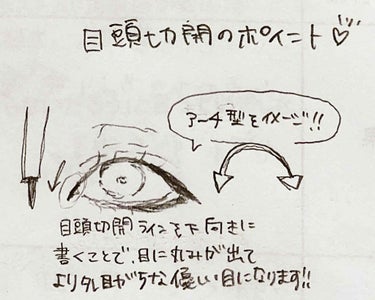 目頭切開のポイント♡
アーチ型をイメージ!!
目頭切開ラインを下向きに
書くことで、目に丸みが出て
よりタレ目がちな優しい目になります!!